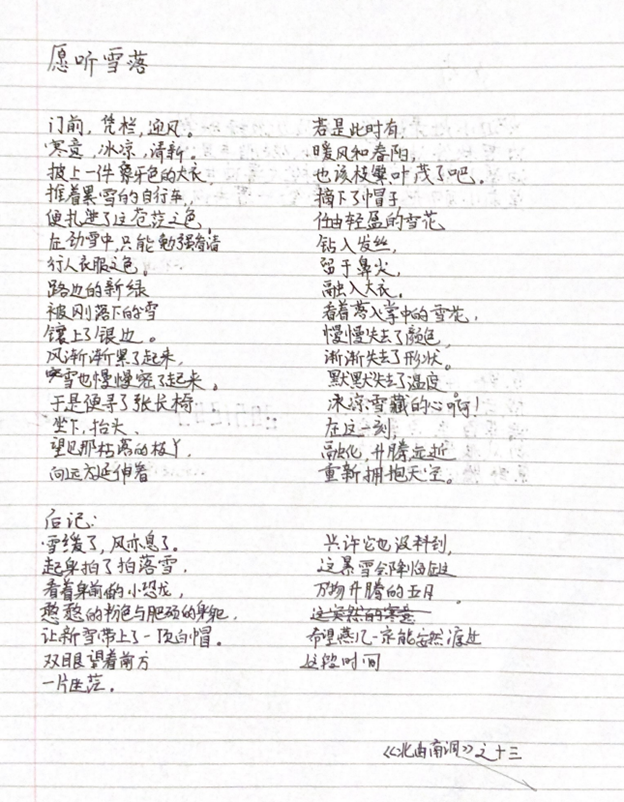 愿听雪落
门前，凭栏，迎风。
寒意，冰凉，清新。
披上一件象牙色的大衣，
推着累雪的自行车，
便扎进了这苍茫之色，
在劲雪中，只能勉强看清
行人衣服之色。
路边的新绿
被刚落下的雪
镶上了银边。
风渐渐累了起来，
雪也慢慢密了起来。
于是便寻了张长椅
坐下，抬头、
望见那枯落的枝丫，
向远方延伸着
若是此时有
暖风和春阳，
也该枝繁叶茂了吧。
摘下了帽子
任由轻盈的雪花
钻入发丝，
留于鼻尖，
融入大衣。
看着落入掌中的雪花，
慢慢失去了颜色，
渐渐失去了形状。
默默失去了温度。
冰凉雪藏的心啊！
在这一刻，
融化，升腾，
重新拥抱天空。
后记：
雪缓了，风亦息了。
起身拍了拍落雪，
看着身前的小恐龙，
憨憨的书包与肥硕的身躯，
让新雪带上了一顶白帽。
双目眼望着前方
一片
兴许它也没料到，
这暴雪会降临在这
万物升腾的五月。
这突然的寒意
希望燕儿一定能安然渡过
这段时间
《北曲南洞》之十三